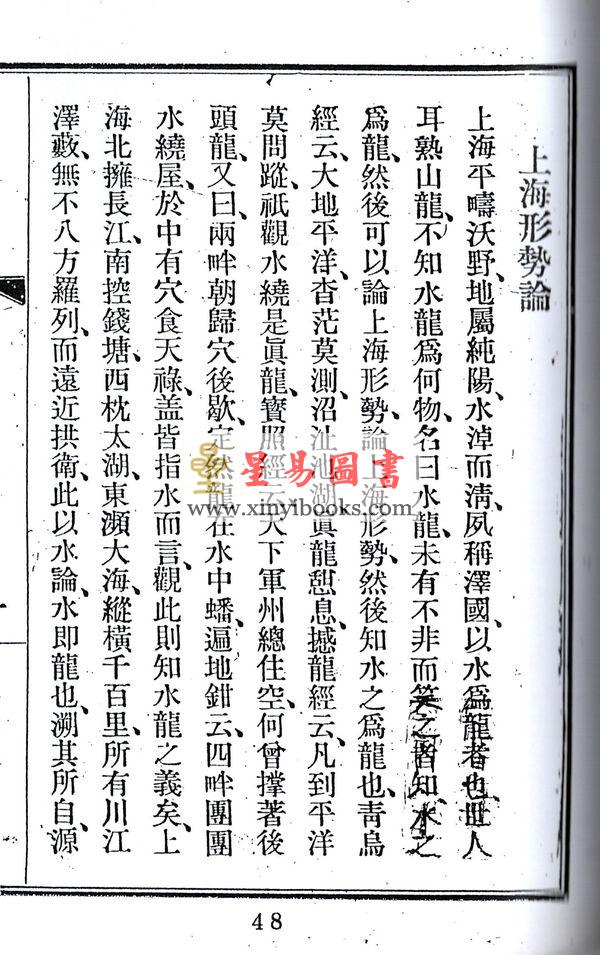 上海形勢論
上海平疇沃野、地屬純陽、水淖而清、夙稱澤國、以水爲龍者也、世人
耳熟山龍、不知水龍爲何物、名曰水龍、未有不非而笑之知水之
爲龍然後可以論上海形勢、論上海形勢、然後知水之爲龍也、靑烏
經云、大地平洋、杳茫莫測、沼沚池湖、眞龍憇息、撼龍經云、凡到平洋
莫問蹤、祇觀水繞是眞龍、寶照經云、天下軍州總住空、何曾撑著後
頭龍、又曰、兩畔朝歸穴後歇、定然龍在水中蟠、遍地鉗云、四畔團團
水繞屋、於中有穴食天祿、盖皆指水而言、觀此則知水龍之義矣、上
海北擁長江、南控錢塘、西枕太湖、東瀕大海、縱橫千百里、所有川江
澤藪、無不八方羅列、而遠近拱衛、此以水論、水即龍也、溯其所自、源
星易圖書
www.xinyibooks.com
48